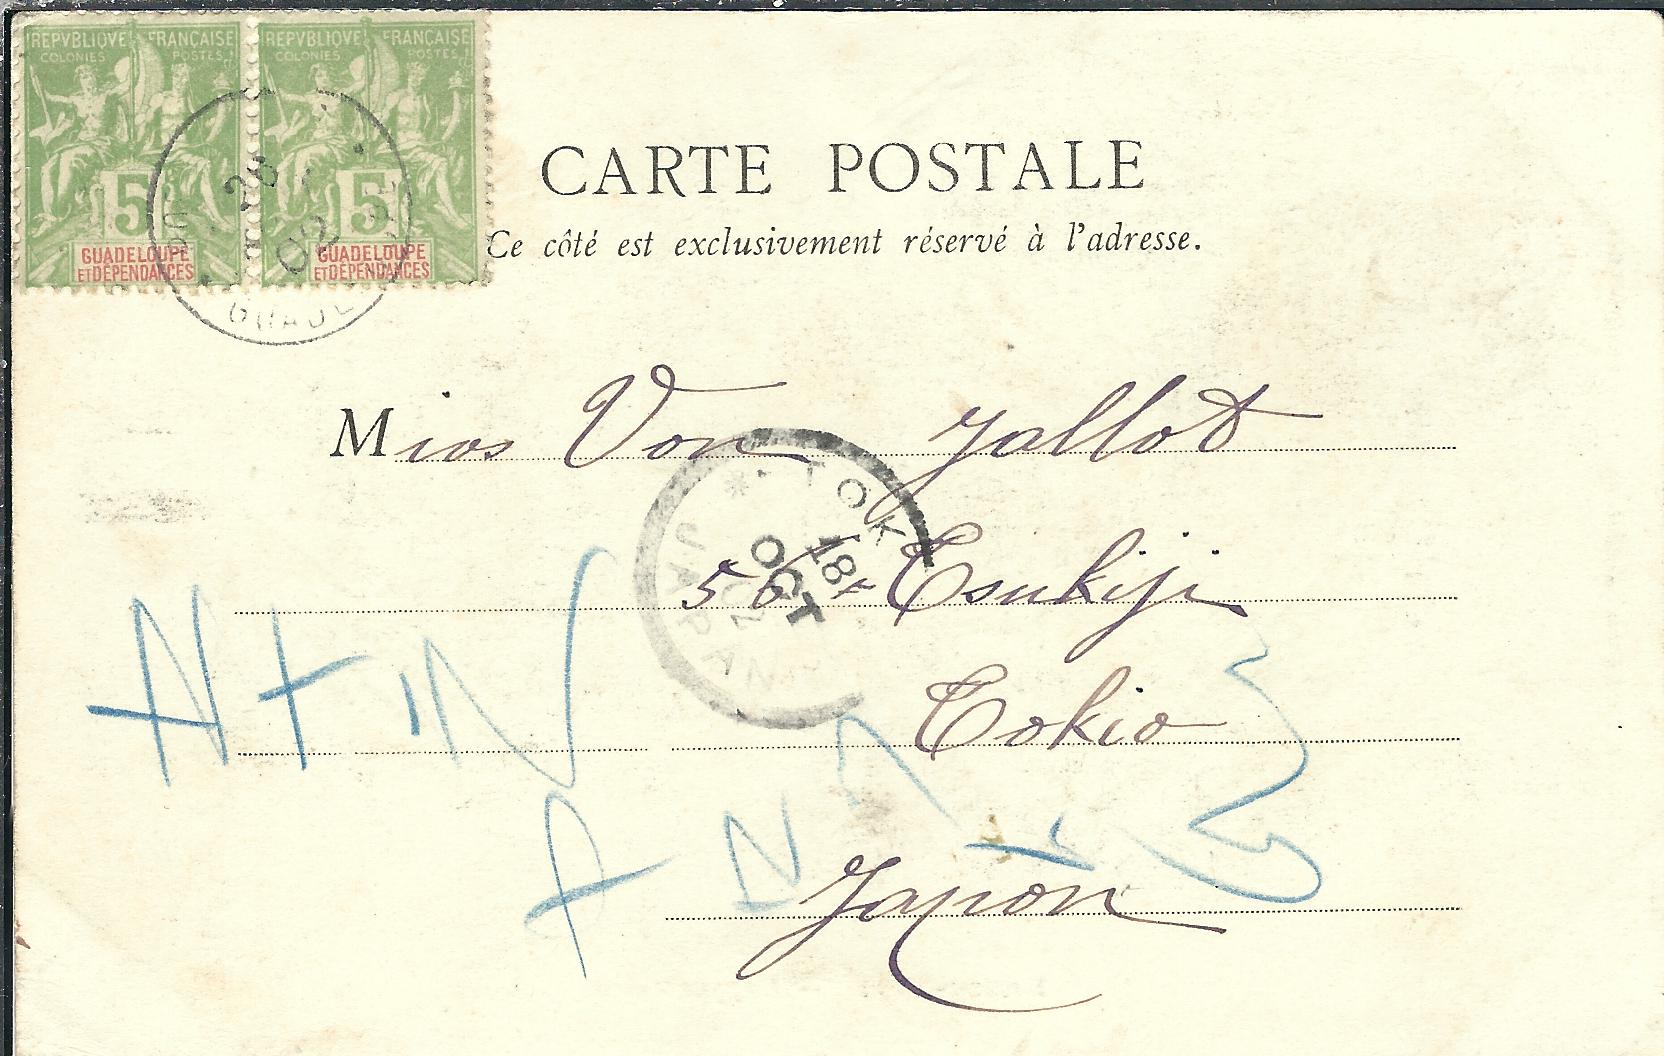 REPVBLIQVE FRANÇAISE
COLONIES POSTES
5
GUADELOUPE
ET DÉPENDANCES
REPVBLIQVE FRANÇAISE
COLONIES POSTES
5
GUADELOUPE
ET DÉPENDANCES
26
02
GUADE
CARTE POSTALE
Ce côté est exclusivement réservé à l'adresse.
Miss Von Jallot
TOK
18
OCT
02
JAPAN
56 Tsukiji
Tokio
Japon